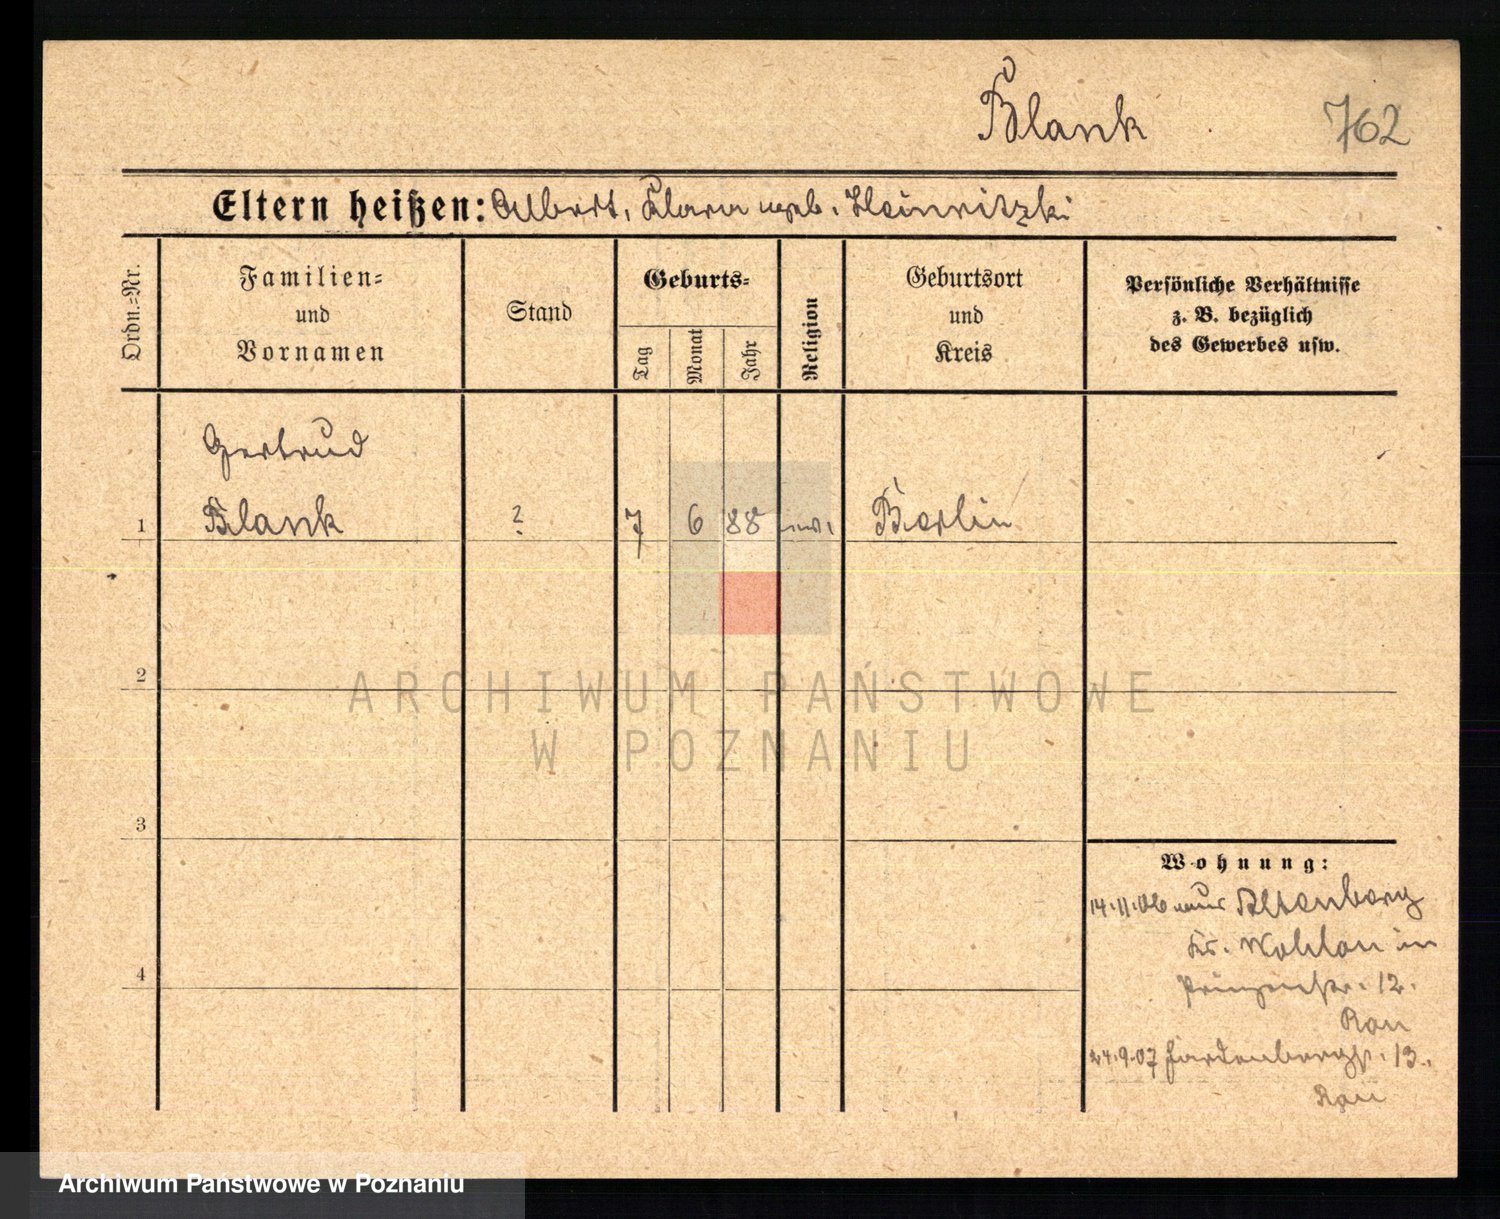 Blank
762
Eltern heißen: Albert, Klara geb. Heinritzki
Ordn.=Nr.
Familien=
und
Vornamen
Stand
Geburts=
Tag
Monat
Jahr
Religion
Geburtsort
und
Kreis
Persönliche Verhältnisse
z. B. bezüglich
des Gewerbes usw.
Gertrud
1 Blank ? 7 6 88 ev. Berlin
2
ARCHIWUM PAŃSTWOWE
W POZNANIU
3
4
Wohnung:
14.11.06 aus Altenberg
Kr. Wohlau in
Prinzenstr. 12.
Rau
24.9.07 Hardenbergstr. 13.
Rau
Archiwum Państwowe w Poznaniu